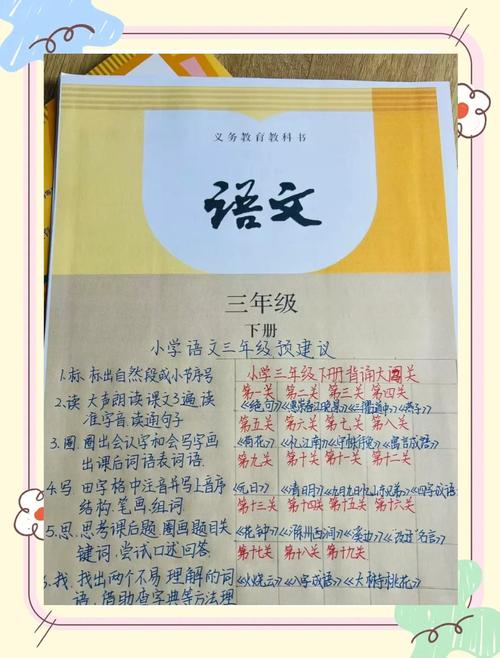 义务教育教科书
语文
三年级
下册
小学语文三年级预建议
1.标.标出自然段或小节序号
2.读 大声朗读课文3遍,读
准字音.读通句子
3.圈.圈出会认字和会写字画
出课后词语表词语.
4.写 田字格中注音并写上音序
结构.笔画,组词
5.思.思考课后题.圈画题目关
键词.尝试口述回答.
找.找出两个不易理解的词
语,借助查字典等方法理
小学三年级下册背诵大闯关
第一关 第二关 第三关 第四关
《绝句》《惠崇春江晚景》《三衢道中》《燕子》
第五关 第六关 第七关 第八关
《荷花》《忆江南》《守株待兔》《寓言成语》
第九关 第十关 第十一关 第十二关
《元日》《清明》《九月九日忆山东兄弟》《四字成语》
第十三关 第十四关 第十五关 第十六关
《花钟》《滁州西涧》《溪边》《改过名言》
第十七关 第十八关 第十九关
《火烧云》《八字成语》《大林寺桃花》